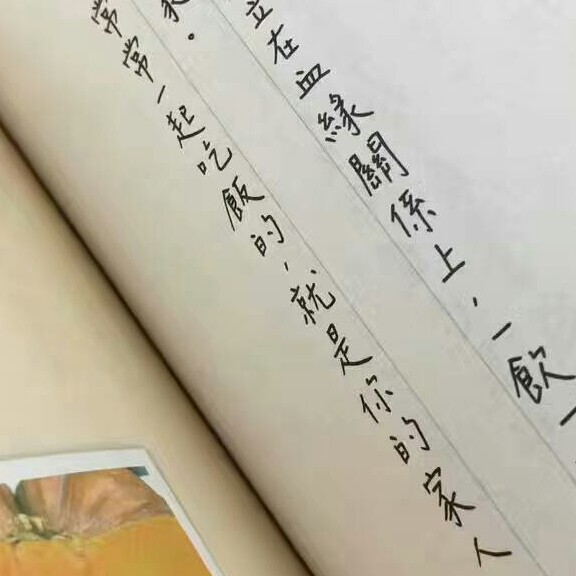 立在血緣關係上，一飲一
家。
常常一起吃飯的，就是你的家人